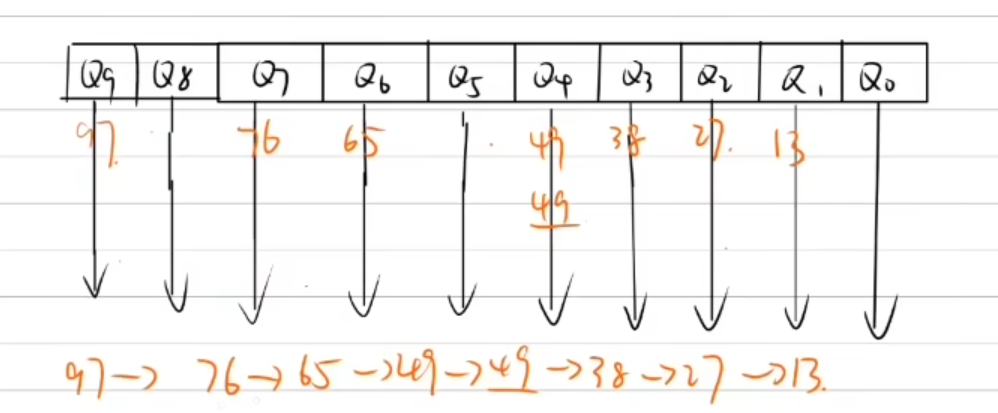 Q9 Q8 Q7 Q6 Q5 Q4 Q3 Q2 Q1 Q0
97. 76 65 49 38 27. 13
49
97→ 76→65→49→49→38→27→13.